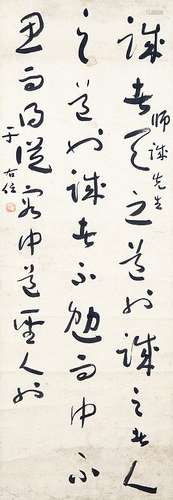 誠者天之道也誠之者人
之道也誠者不勉而中不
思而得從容中道聖人也
師誠先生
于右任